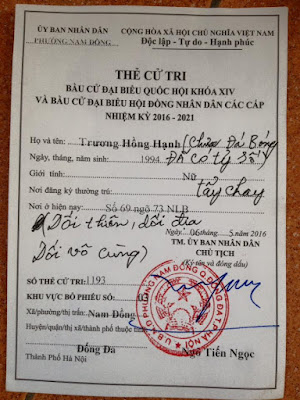 ỦY BAN NHÂN DÂN
PHƯỜNG NAM ĐỒNG
CỘNG HÒA XÃ HỘI CHỦ NGHĨA VIỆT NAM
Độc lập - Tự do - Hạnh phúc
THẺ CỬ TRI
BẦU CỬ ĐẠI BIỂU QUỐC HỘI KHÓA XIV
VÀ BẦU CỬ ĐẠI BIỂU HỘI ĐỒNG NHÂN DÂN CÁC CẤP
NHIỆM KỲ 2016 - 2021
Họ và tên: Trương Hồng Hạnh (Chùa Đá Bóng
Ngày, tháng, năm sinh: 1994 Đã có tỷ số)
Giới tính: Nữ
Nơi đăng ký thường trú: tẩy chay
Nơi ở hiện nay: Số 69 ngõ 73 NLB
(Dối thiên, dối địa
Ngày 06 tháng 5 năm 2016
Dối vô cùng)
TM. ỦY BAN NHÂN DÂN
CHỦ TỊCH
(Ký tên và đóng dấu)
SỐ THẺ CỬ TRI: 1193
KHU VỰC BỎ PHIẾU SỐ: 03
Xã/phường/thị trấn Nam Đồng
Huyện/quận/thị xã/thành phố thuộc tỉnh
Đống Đa
Ngô Tiến Ngọc
Thành Phố Hà Nội